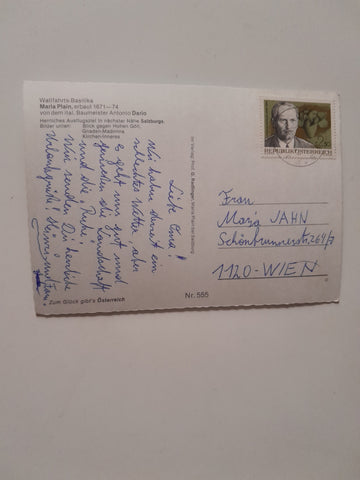 Wallfahrts-Basilika
Maria Plain, erbaut 1671—74
von dem ital. Baumeister Antonio Dario
Herrliches Ausflugsziel in nächster Nähe Salzburgs.
Bilder unten: Blick gegen Hohen Göll,
Gnaden-Madonna
Kirchen-Inneres
Liebe Oma!
Wir haben derzeit ein
schlechtes Wetter, aber
es geht uns gut und
genießen die Landschaft
und die Ruhe!
Wir senden Dir herzliche
Urlaubsgrüße!
Zum Glück gibt's Österreich
Nr. 555
REPUBLIK ÖSTERREICH
Frau
Maria JAHN
Schönbrunnerstr. 264/7
1120-WIEN